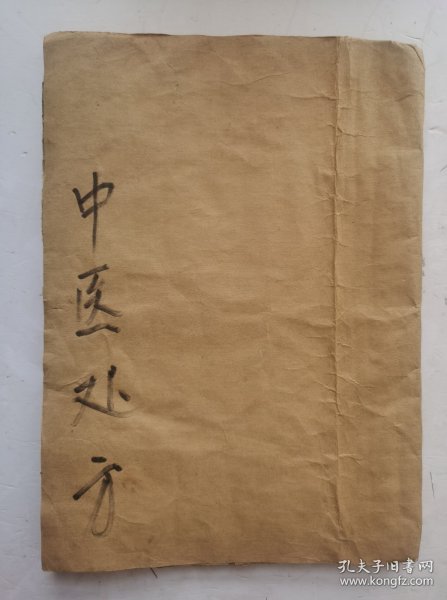 中医处方
孔夫子旧书网
www.kongfz.com